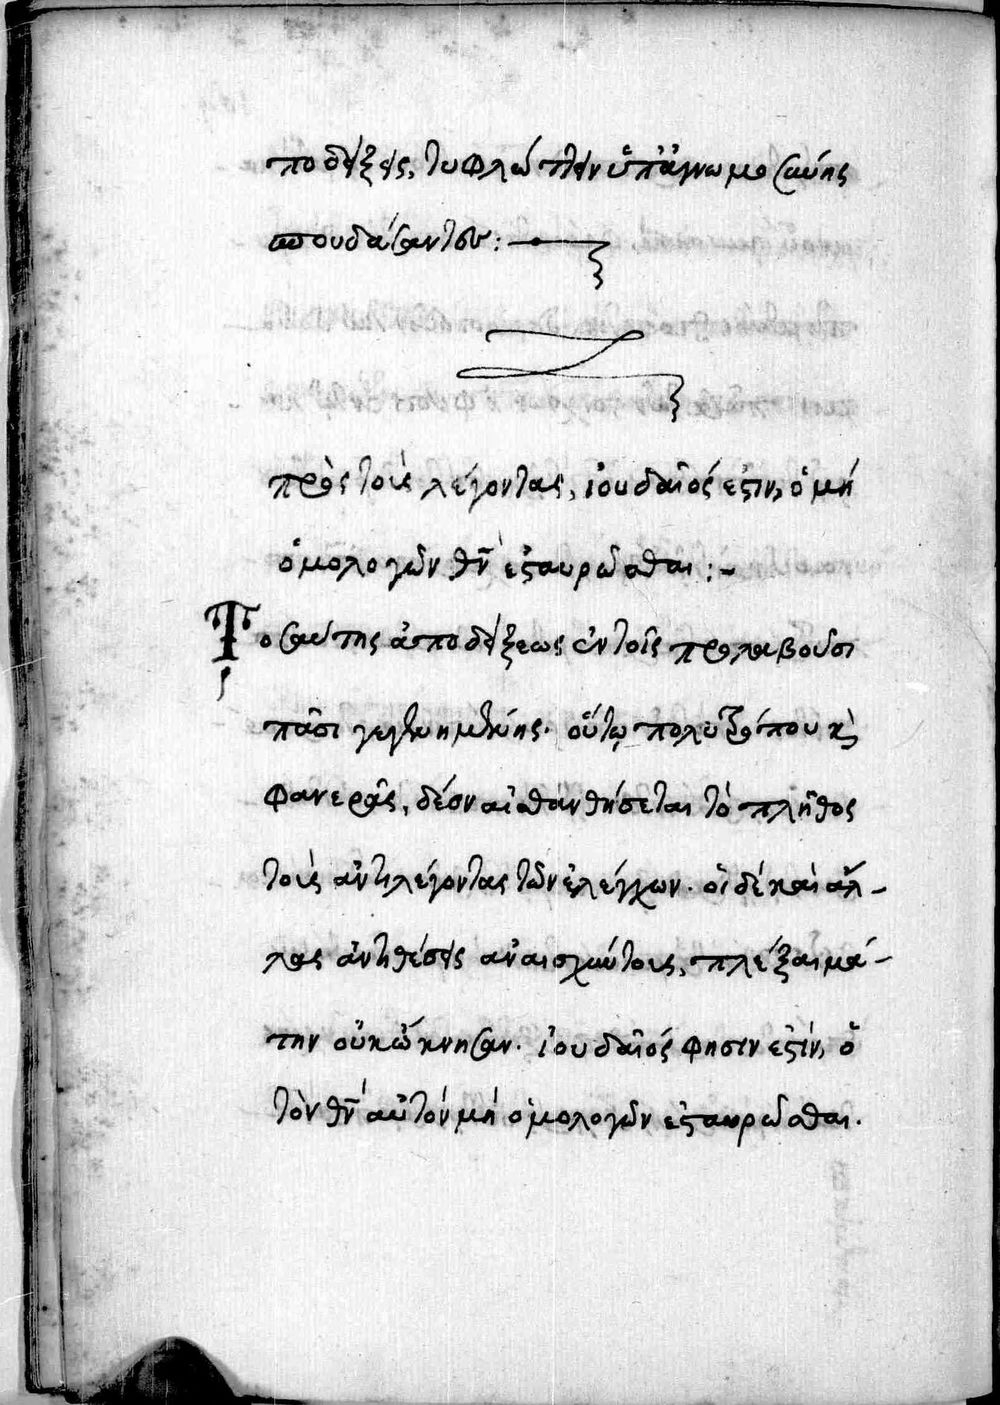 ποδείξεις, τυφλώττειν ὑπ' ἀγνωμοσύνης
σπουδάσαντες:
πρὸς τοὺς λέγοντας, ἰουδαῖός ἐστιν, ὁ μὴ
ὁμολογῶν θν̅ ἐσταυρῶσθαι:-
Τοσαύτης ἀποδείξεως ἐν τοῖς προλαβοῦσι
πᾶσι γεγενημένης. οὕτω πολυτρόπου κ̀
φανερᾶς, δέον αἰσχυνθήσεται τὸ πλῆθος
τοὺς ἀντιλέγοντας τῶν ἐλέγχων. οἱ δὲ καὶ ἄλ-
λας ἀντιθέσεις ἀναισχύντους, πλέξαι μά-
την οὐκ ὤκνησαν. ἰουδαῖός φησιν ἐστὶν, ὁ
τὸν θν̅ αὐτὸν μὴ ὁμολογῶν ἐσταυρῶσθαι.